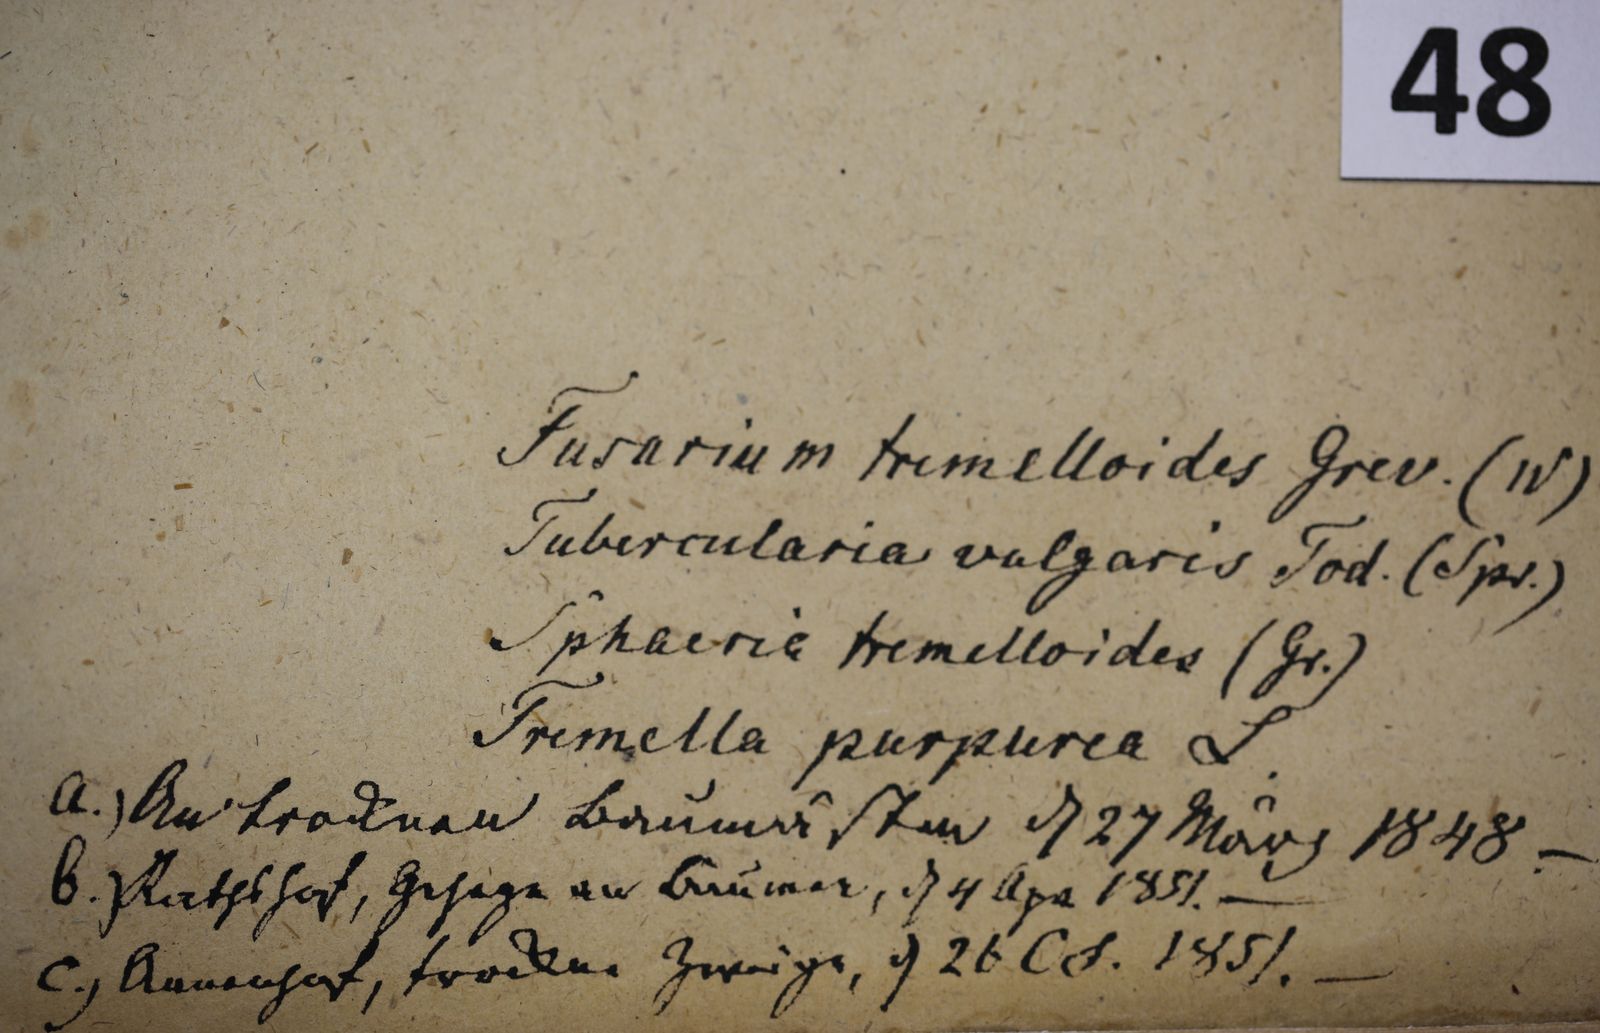 48
Fusarium tremelloides Grev. (W)
Tubercularia vulgaris Tod. (Spr.)
Sphaeria tremelloides (Gr.)
Tremella purpurea L.
a.) An trocknen Baumästen d 27 März 1848. —
b.) Rathshof, Gehege an Bäumen, d 4 Apr 1851. —
c.) Annenhof, trockne Zweige, d 26 Oct. 1851. —